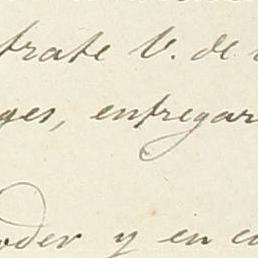 trate V. de
ges, entregar
oder y en co